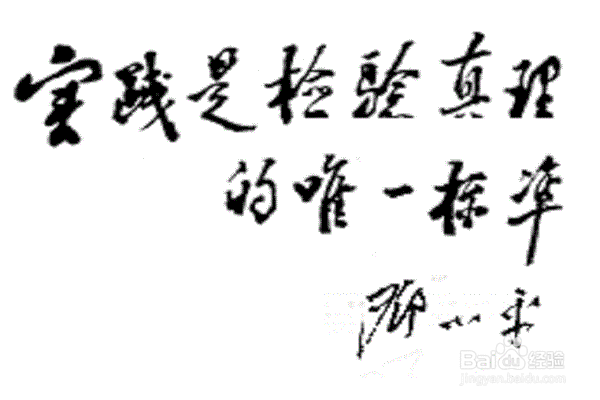 实践是检验真理
的唯一标准
邓小平
Baidu经验
jingyan.baidu.com